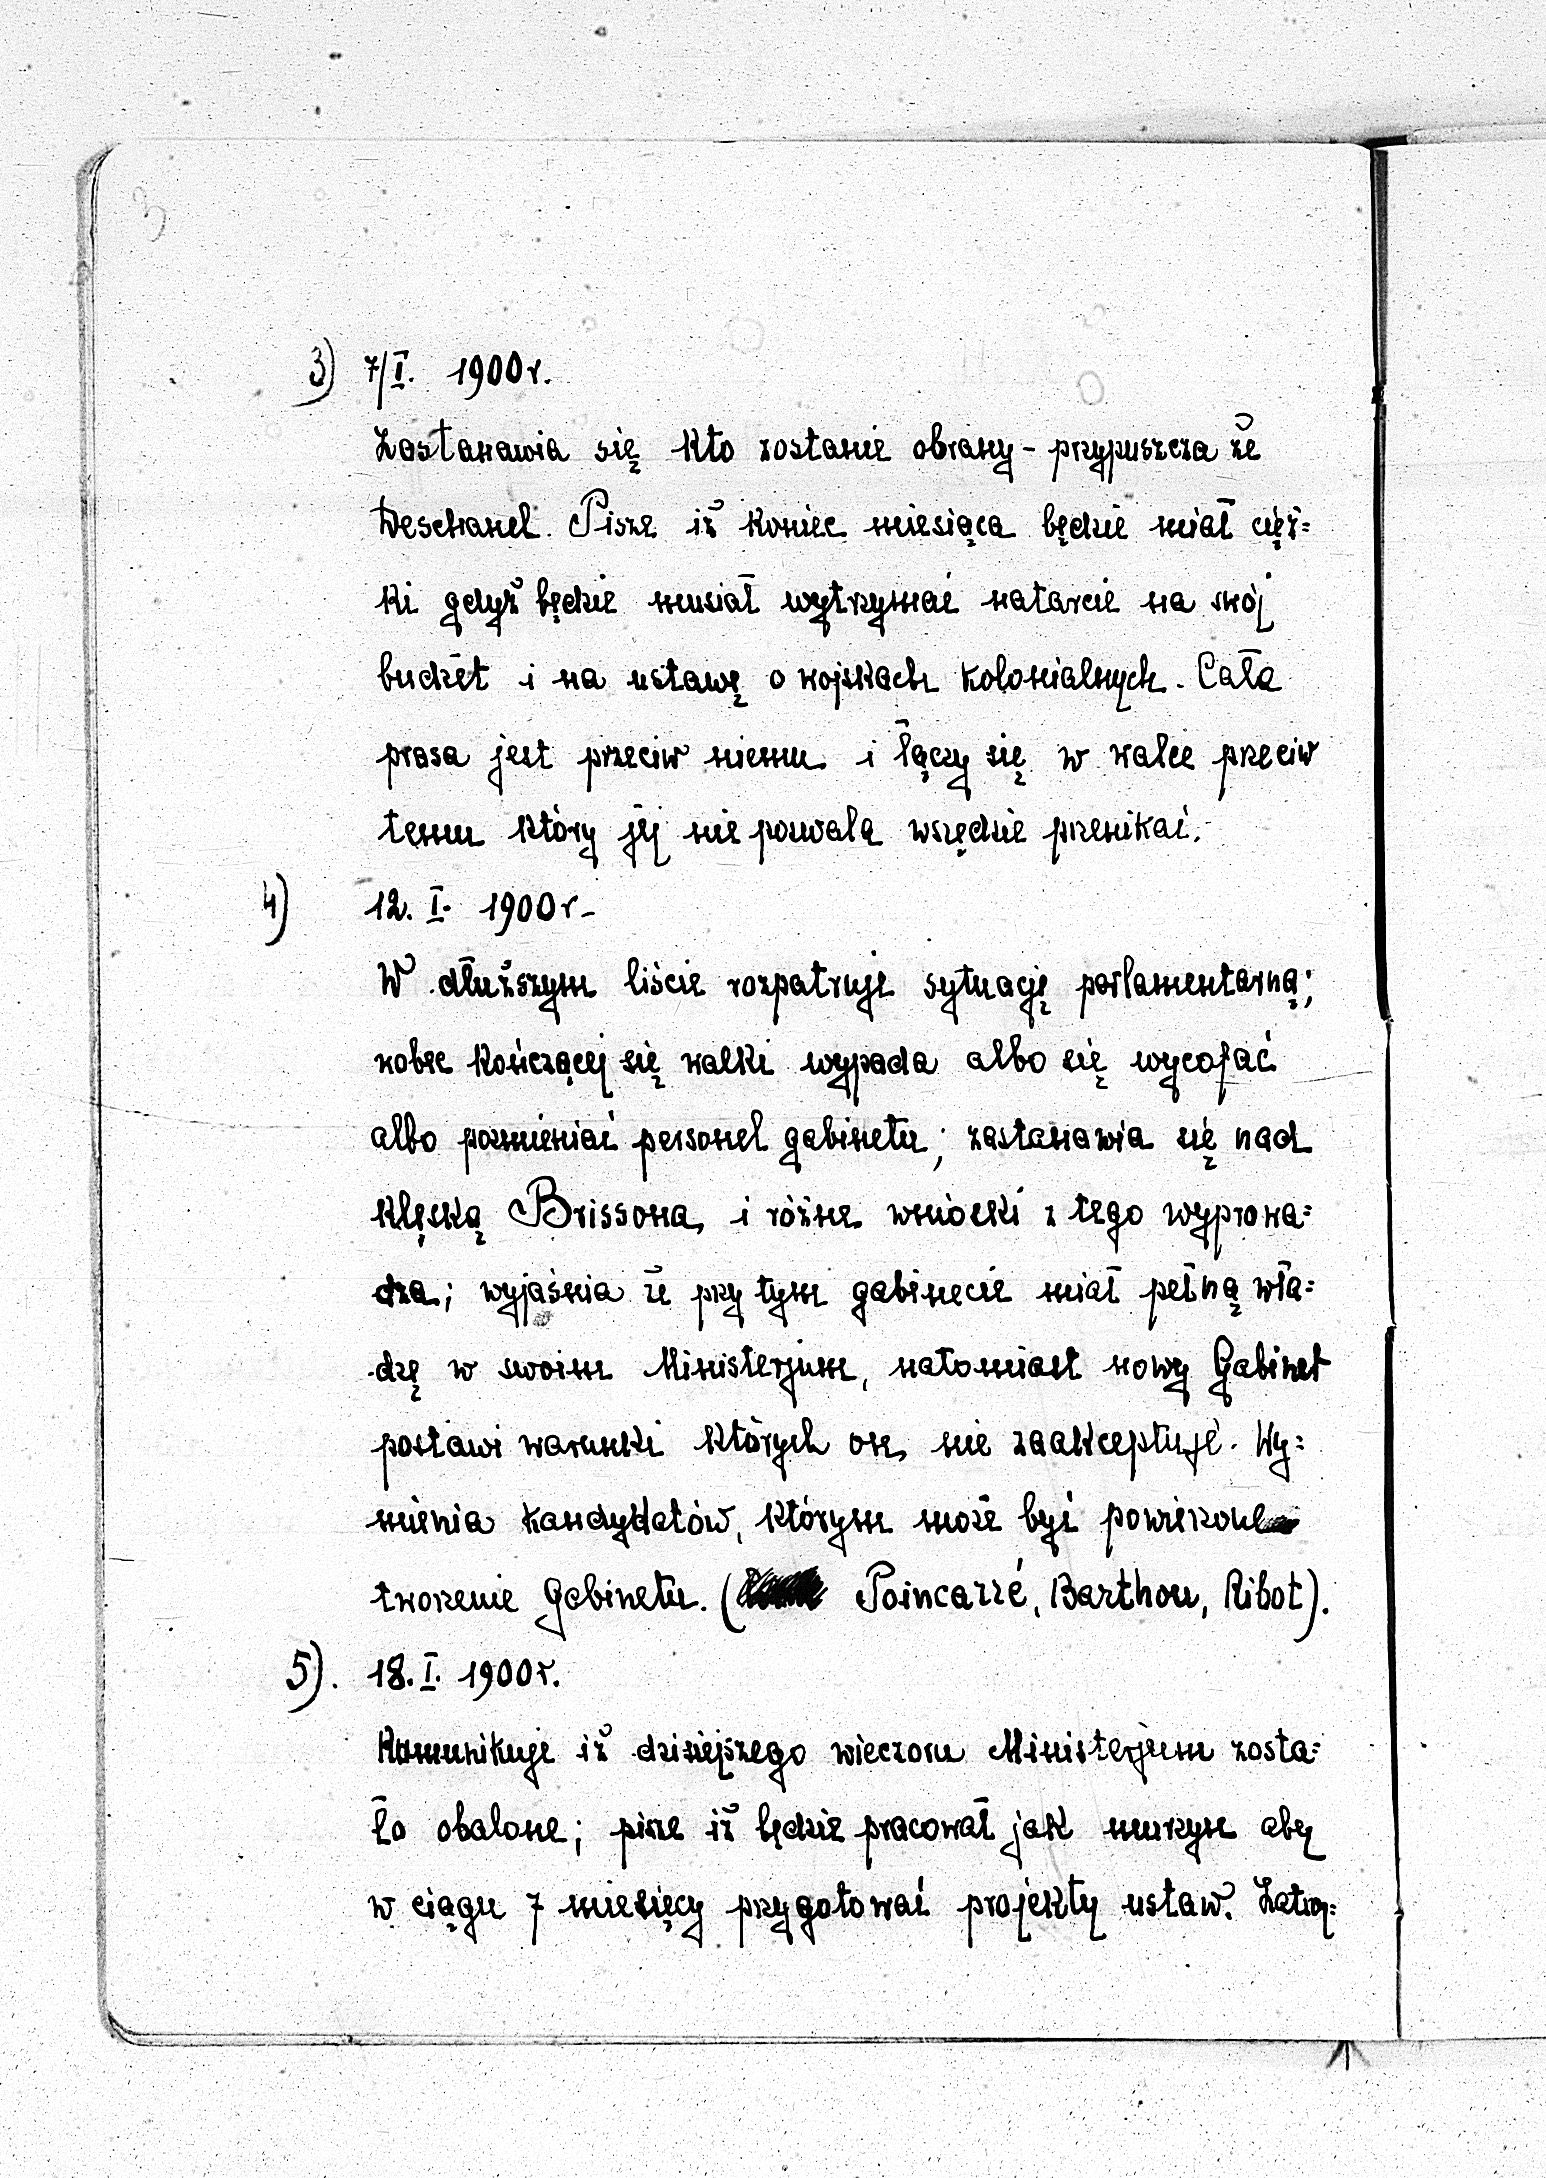 3
3) 7/I. 1900r.
Zastanawia się kto zostanie obrany - przypuszcza że
Deschanel. Pisze iż koniec miesiąca będzie miał cięż=
ki gdyż będzie musiał wytrzymać natarcie na swój
budżet i na ustawę o wojskach kolonialnych. Cała
prasa jest przeciw niemu i łączy się w walce przeciw
temu który jej nie pozwala wszędzie przenikać.
4) 12. I. 1900r-
W dłuższym liście rozpatruje sytuację parlamentarną;
wobec kończącej się walki wypada albo się wycofać
albo pozmieniać personel gabinetu; zastanawia się nad
klęską Brissona, i różne wnioski z tego wyprowa=
dza; wyjaśnia że przy tym gabinecie miał pełną wła=
dzę w swoim Ministerjum, natomiast nowy Gabinet
postawi warunki których on, nie zaakceptuje. Wy=
mienia kandydatów, którym może być powierzone
tworzenie Gabinetu. ( Poincarré, Barthou, Ribot).
5). 18. I. 1900r.
Komunikuje iż dzisiejszego wieczoru Ministerjum zosta=
ło obalone; pisze iż będzie pracował jak murzyn aby
w ciągu 7 miesięcy przygotować projekty ustaw.